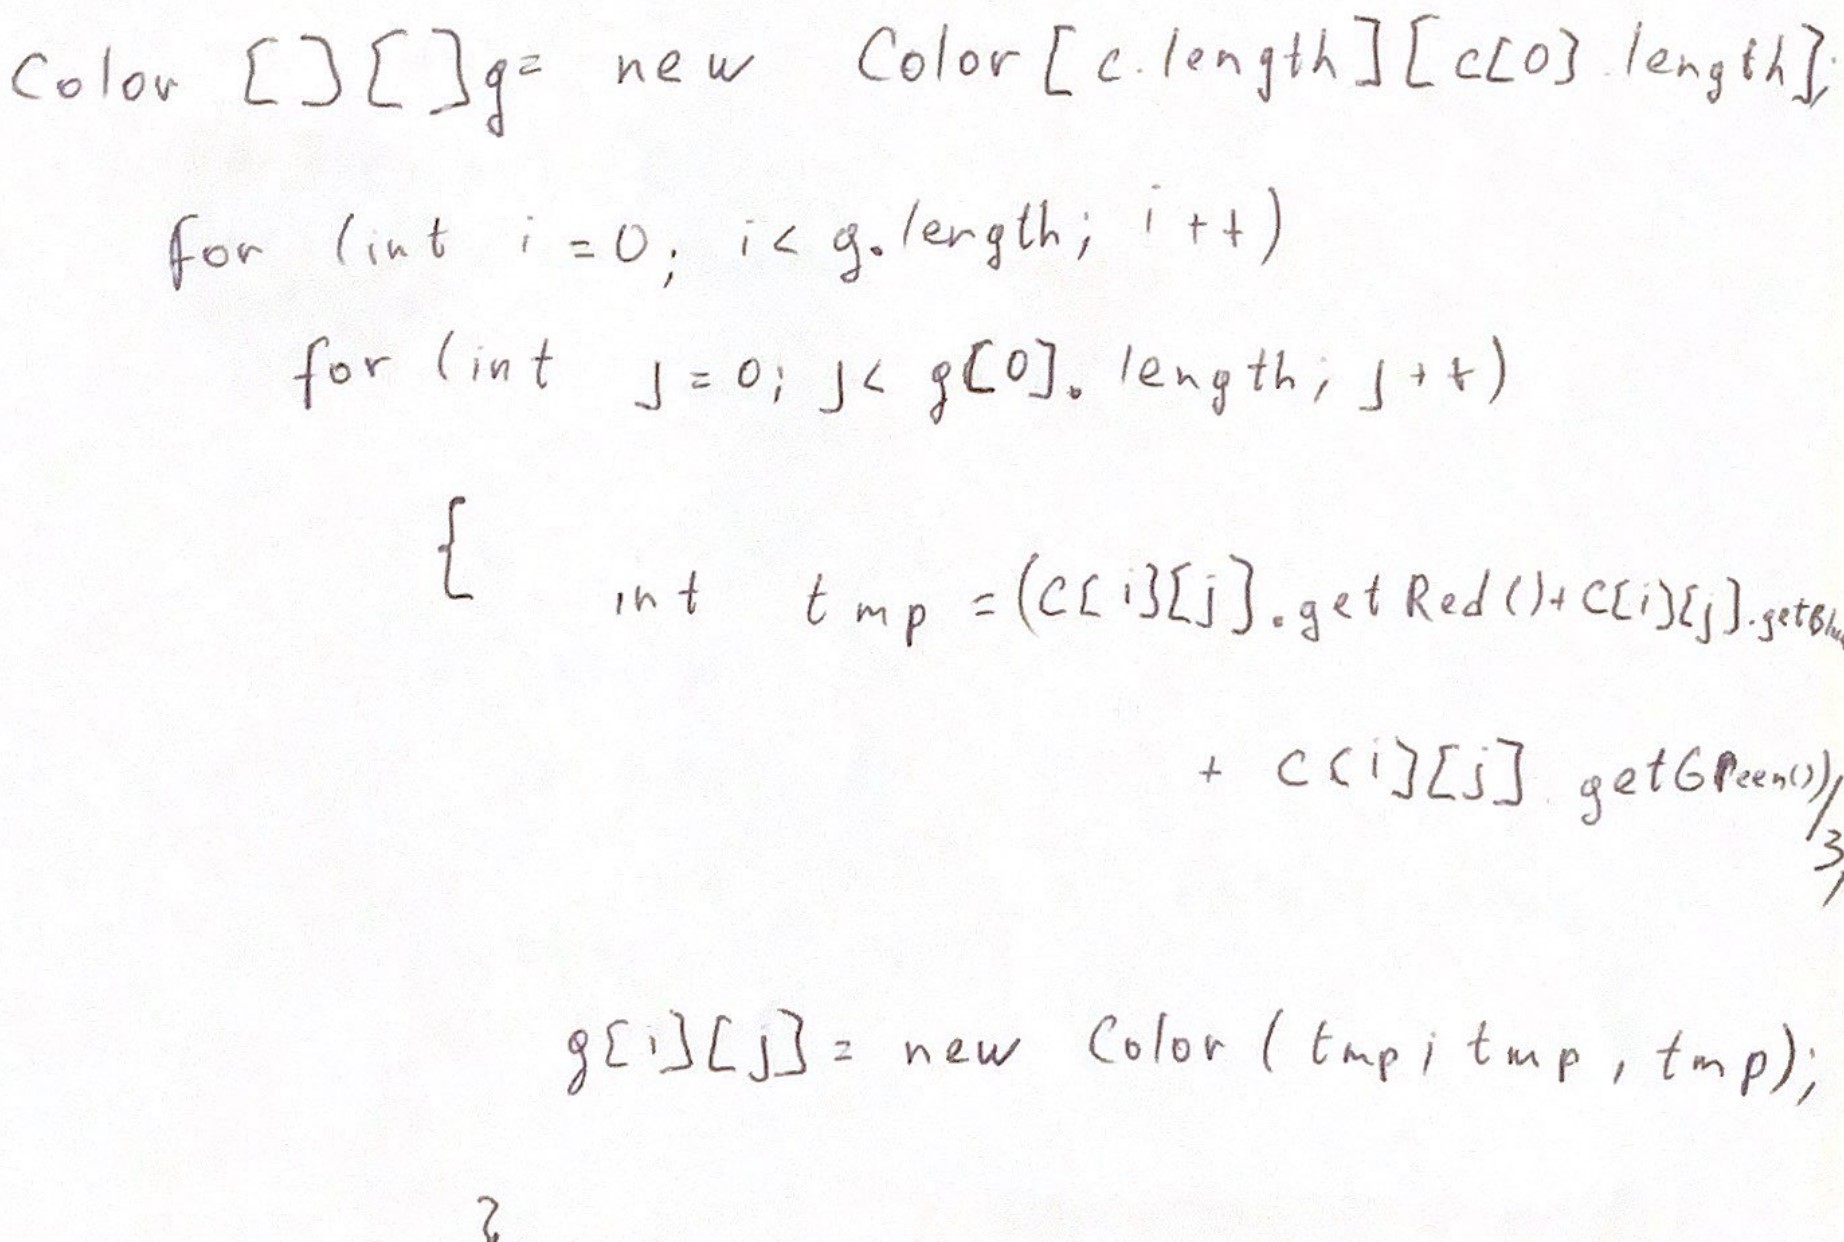 Color [][]g= new Color[c.length][c[0].length];
for (int i=0; i< g.length; i++)
for (int j=0; j< g[0].length; j++)
{ int tmp =(C[i][j].getRed()+C[i][j].getBlu
+ C[i][j].getGReen())/
3;
g[i][j]= new Color (tmp; tmp, tmp);
}